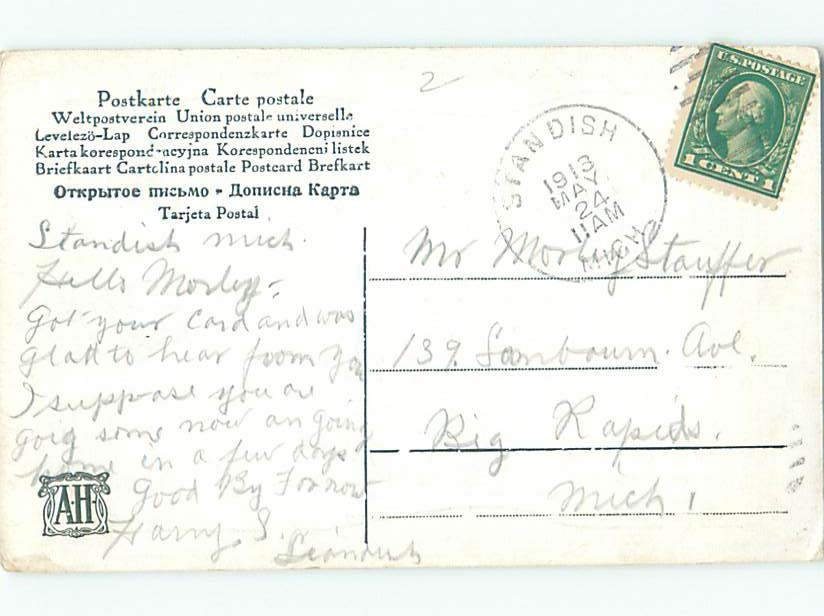 2
Postkarte Carte postale
Weltpostverein Union postale universelle
Levelezö-Lap Correspondenzkarte Dopisnice
Karta korespondencyjna Korespondencni listek
Briefkaart Cartolina postale Postcard Brefkort
Открытое письмо - Дописна Карта
Tarjeta Postal
U.S. POSTAGE
1 CENT 1
STANDISH
1913
MAY
24
11AM
MICH
Standish Mich.
Hello Morley:
Got your card and was
glad to hear from you
I suppose you are
goig some now an going
home in a few days
Good By For now
Harry S.
Standish
A·H·
Mr Morley Stauffer
139 Sanbourn. Ave.
Big Rapids.
Mich.